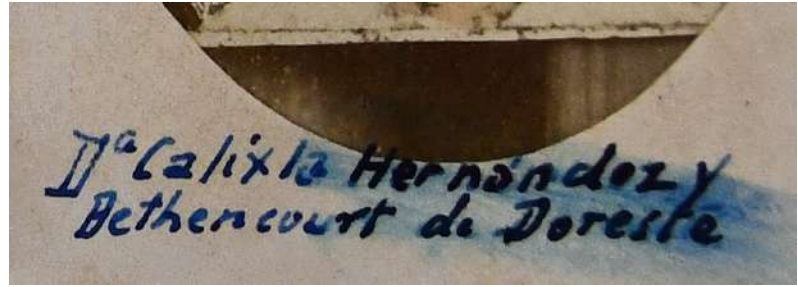 Dª Calixta Hernández y
Bethencourt de Doreste